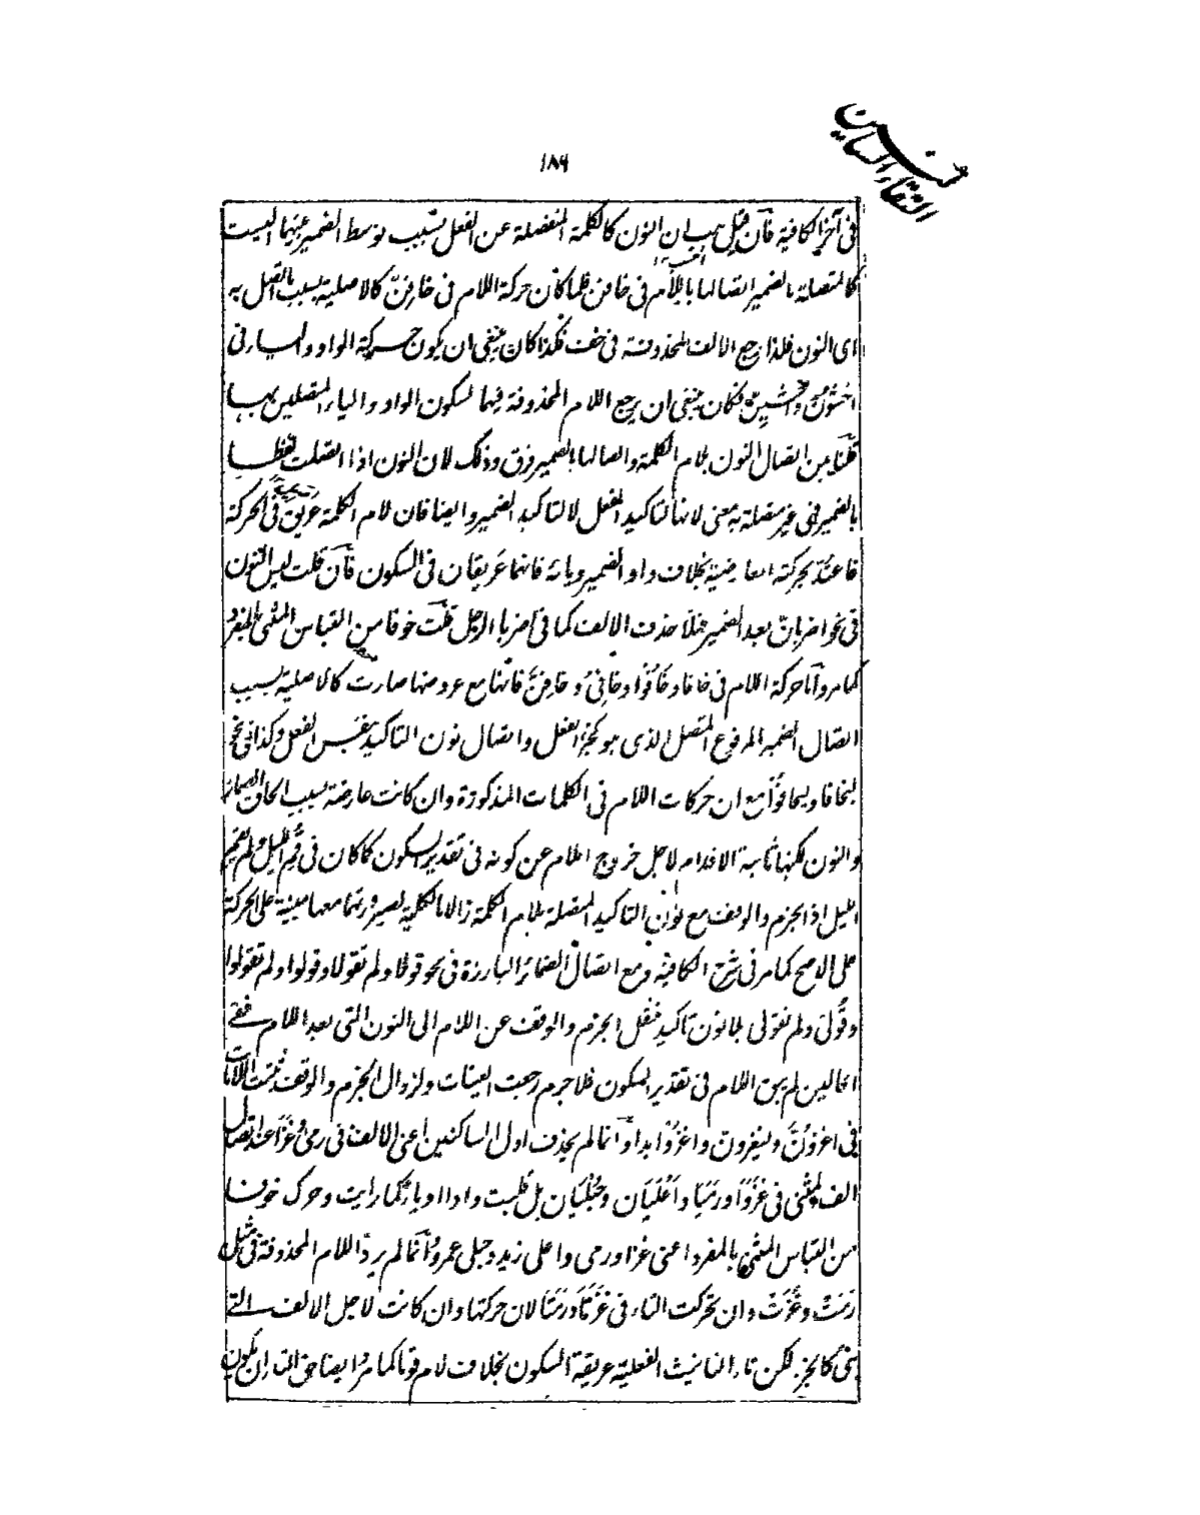 التقاء الساكنين
١٨٦
فى آخر الكافية فان قيل هب ان النون كالكلمة المنفصلة عن الفعل بسبب توسط الضمير بينهما اليست
كالمتصلة بالضمير اتصالها باللام فى خافن فلما كان حركة اللام فى خافنّ كالاصلية بسبب ما اتصل به
اى النون فلذا رجع الالف المحذوفة فى خف فكذا كان ينبغى ان يكون حركة الواو والياء فى
اخشونّ واخشينّ فكان ينبغى ان يرجع اللام المحذوفة فيهما لسكون الواو والياء المتصلين بها
قلنا بين اتصال النون بلام الكلمة واتصالها بالضمير فرق وذلك لان النون اذا اتصلت لفظا
بالضمير فهى غير متصلة به معنى لانها لتاكيد الفعل لا لتاكيد الضمير وايضا فان لام الكلمة عريق فى الحركة
فاعتدّ بحركته العارضية بخلاف واو الضمير ويائه فانهما عريقان فى السكون فان قلت ليس النون
فى نحو اضربانّ بعد الضمير فهلا حذفت الالف كما فى اضربا الرجل قلت خوفا من التباس المثنى بالمفرد
كما مر واما حركة اللام فى خافا وخافوا وخافى وخافنّ فانها مع عروضها صارت كالاصلية بسبب
اتصال الضمير المرفوع المتصل الذى هو كجزء الفعل واتصال نون التاكيد بنفس الفعل وكذا فى نحو
ليخافا وليخافوا مع ان حركات اللام فى الكلمات المذكورة وان كانت عارضة بسبب الحاق الضمائر
والنون لكنها ثابتة الاقدام لاجل خروج اللام عن كونه فى تقدير السكون كما كان فى قم الليل ولم يقم
الليل اذ الجزم والوقف مع نون التاكيد المتصلة بلام الكلمة زالا بالكلية لصيرورتها معها مبنية على الحركة
على الاصح كما مر فى شرح الكافية ومع اتصال الضمائر البارزة فى نحو قولا ولم تقولا وقولوا ولم تقولوا
وقولى ولم تقولى بلا نون تاكيد فنقل الجزم والوقف عن اللام الى النون التى بعد اللام ففى
الحالين لم يبق اللام فى تقدير السكون فلا جرم رجعت العينات ولزوال الجزم والوقف ثبتت اللامات
فى اغزونّ وليغزونّ واغزوا بدا وانما لم يحذف اول الساكنين اعنى الالف فى رمى وغزا عند اتصال
الف المثنى فى غزوا ورميا واعليان وحبليان بل قلبت واوا او ياء كما رايت وحرك خوفا
من التباس المثنى بالمفرد اعنى غزا ورمى واعلى زيد وحبلى عمرو وانما لم يردّ اللام المحذوفة فى مثل
رمت وغزت وان تحركت التاء فى غزتا ورمتا لان حركتها وان كانت لاجل الالف التى
هى كالجزء لكن تاء التانيث الفعلية عريقة السكون بخلاف لام قوما كما مر وايضا حق التاء ان يكون